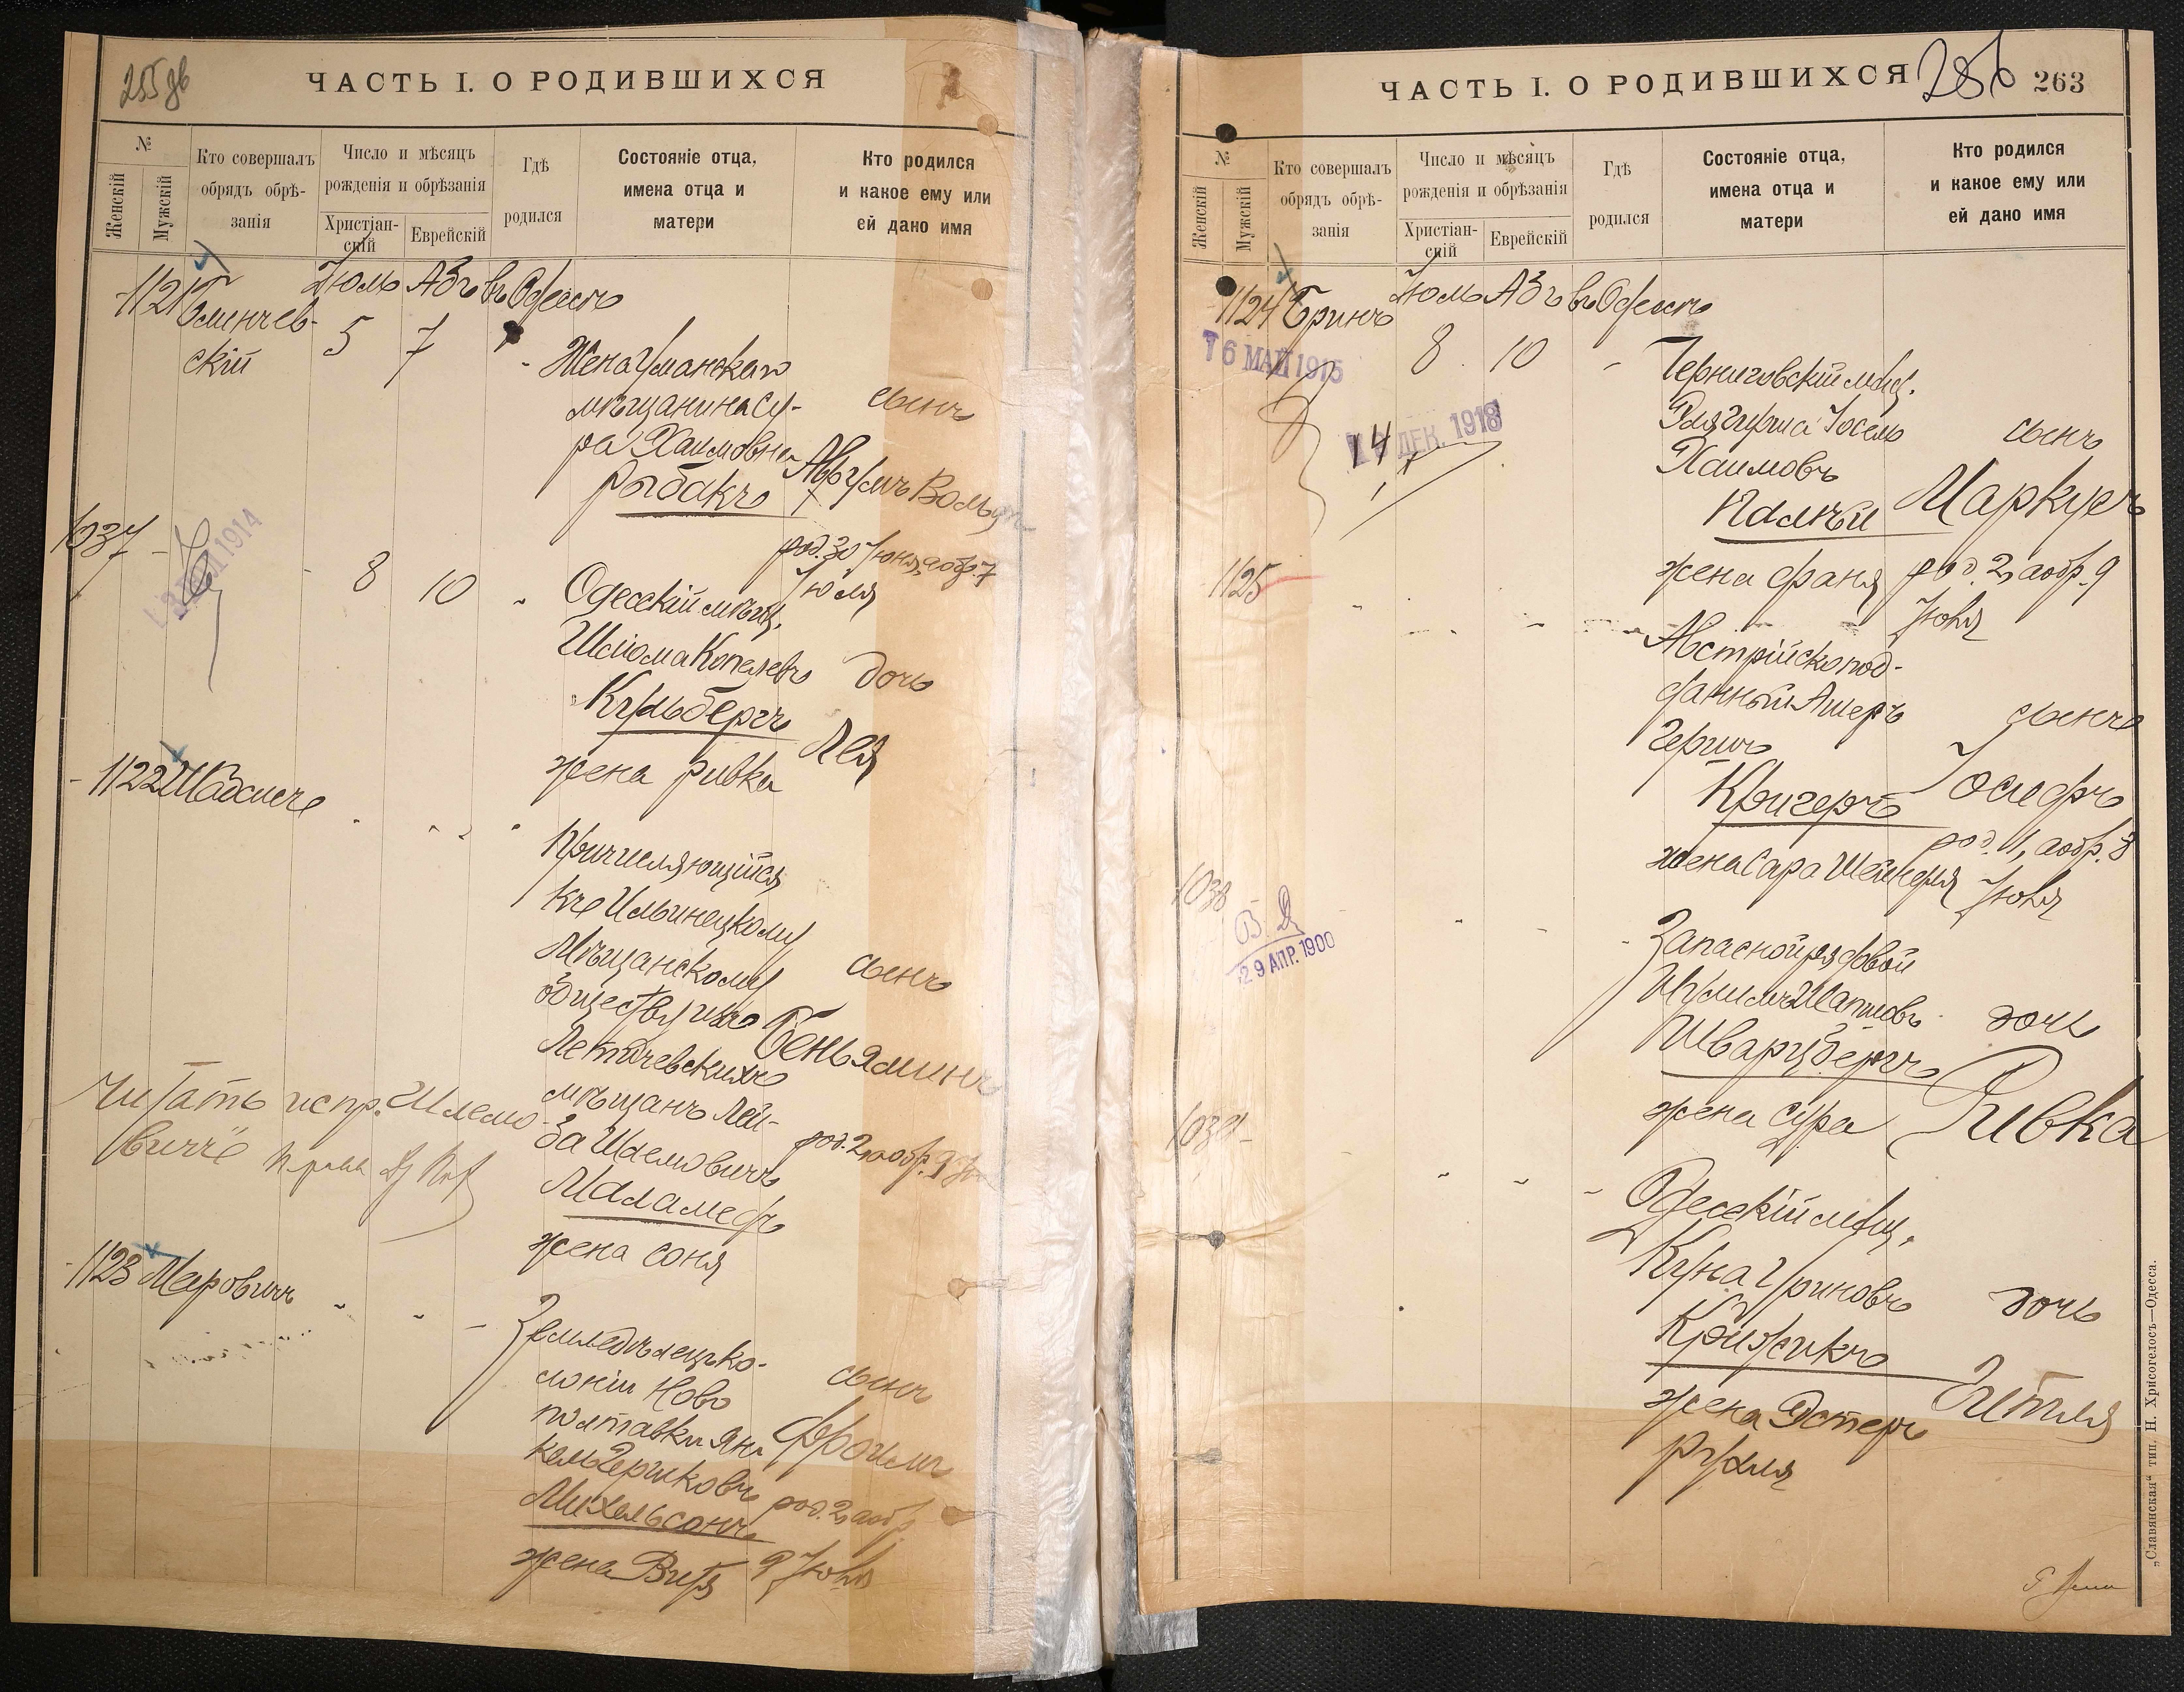 255 об
ЧАСТЬ I. О РОДИВШИХСЯ
№
Женскій
Мужскій
Кто совершалъ
обрядъ обрѣ-
занія
Число и мѣсяцъ
рожденія и обрѣзанія
Христіан-
скій
Еврейскій
Гдѣ
родился
Состояніе отца,
имена отца и
матери
Кто родился
и какое ему или
ей дано имя
1121
скій
Іюль Абъ въ Одессѣ
5 7
Жена Уманскаго
мѣщанина Су-
ра Хаимовна
Рыбакъ
сынъ
Авгумъ Вольфъ
род. 30 Іюня, а обр. 7
Іюля
1037
8 10
Одесскій мѣщ.
Шлиома Копелевъ
Кульбергъ
жена Ривка
дочь
Лея
1122 Шабсисъ
Причисляющійся
къ Ильинецкому
Мѣщанскому
обществу изъ
Летичевскихъ
мѣщанъ Лей-
ба Шлемовичъ
Маламедъ
жена Соня
сынъ
Беньяминъ
род. 2, а обр. 9
Читать испр. Шлемо-
вичъ
1123 Меровичъ
Земледѣлецъ ко-
лоніи Ново
полтавки Ян
кель Гершковъ
Михельсонъ
жена Вита
сынъ
Фроимъ
род. 2, а обр.
9 Іюля
ЧАСТЬ I. О РОДИВШИХСЯ
256
263
№
Женскій
Мужскій
Кто совершалъ
обрядъ обрѣ-
занія
Число и мѣсяцъ
рожденія и обрѣзанія
Христіан-
скій
Еврейскій
Гдѣ
родился
Состояніе отца,
имена отца и
матери
Кто родился
и какое ему или
ей дано имя
1124 Бринъ
Іюль Абъ въ Одессѣ
8 10
16 МАЙ 1915
14 ДЕК. 1918
Черниговскій мѣщ.
Эля Гирша Іосель
Хаимовъ
Палѣй
жена Фаня
сынъ
Маркусъ
род. 2, а обр. 9
Іюля
1125
Австрійскоподд-
данный Ашеръ
Гершъ
Кригеръ
жена Сара Шейндля
сынъ
Іосифъ
род. 1, а обр. 8
Іюля
1038
29 АПР. 1900
Запасной рядовой
Шварцбергъ
жена Сура
дочь
Ривка
1039
Одесскій мѣщ.
Куна Уриновъ
Крижикъ
жена Эстеръ
Рухля
дочь
Гитля
„Славянская“ тип. Н. Хрисогелосъ—Одесса.